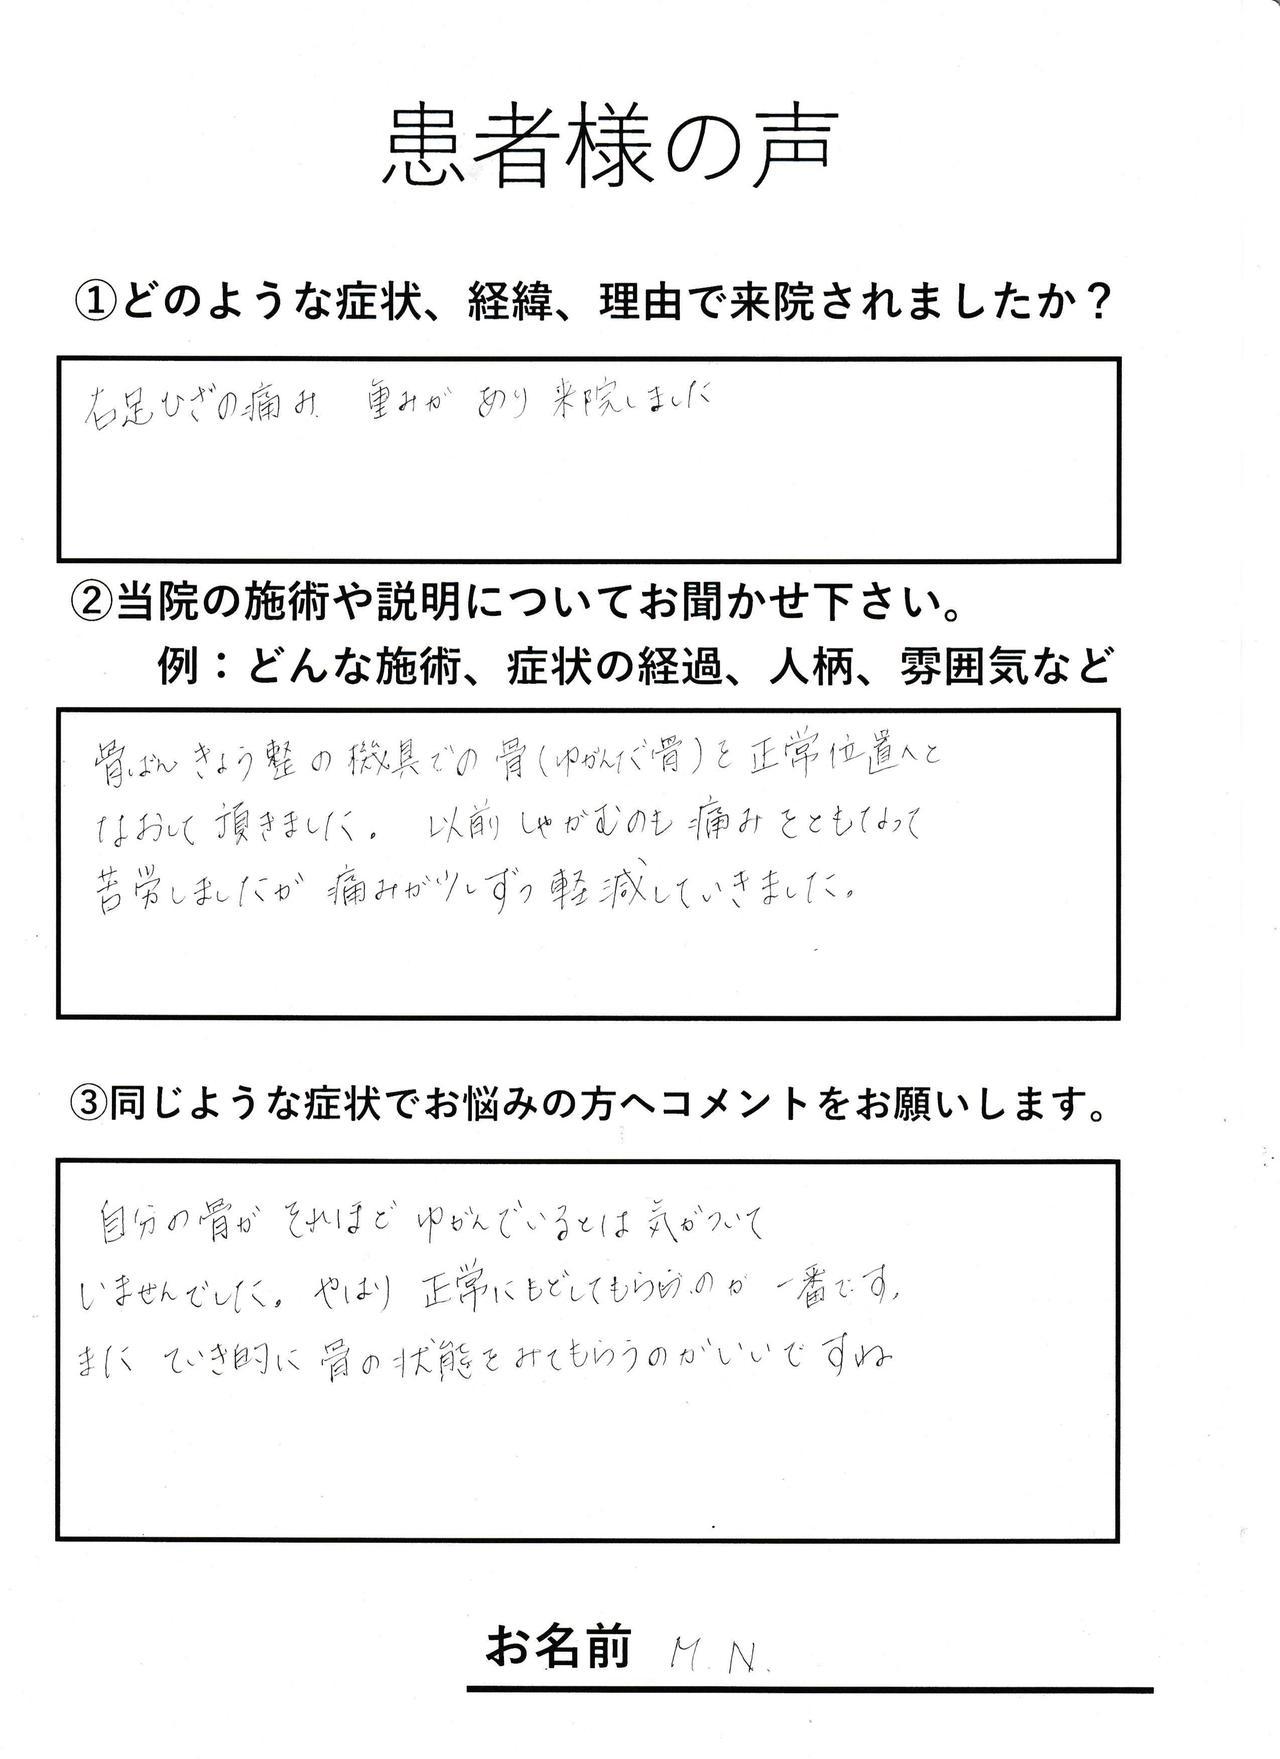 患者様の声
①どのような症状、経緯、理由で来院されましたか？
右足ひざの痛み 重みが あり 来院しました
②当院の施術や説明についてお聞かせ下さい。
例：どんな施術、症状の経過、人柄、雰囲気など
骨ばん きょう整の機具での骨(ゆがんだ骨)を正常位置へと
なおして頂きました。 以前しゃがむのも痛みをともなって
苦労しましたが 痛みが少しずつ軽減していきました。
③同じような症状でお悩みの方へコメントをお願いします。
自分の骨が それほど ゆがんでいるとは気がついて
いませんでした。やはり 正常にもどしてもらうのが 一番です。
また ていき的に 骨の状態をみてもらうのがいいですね
お名前 M.N.